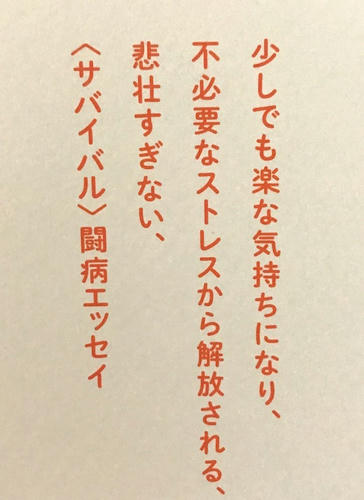 少しでも楽な気持ちになり、
不必要なストレスから解放される、
悲壮すぎない、
〈サバイバル〉闘病エッセイ